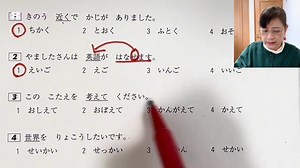 1 きのう 近くで かじが ありました。
1 ちかく 2 とおく 3 ふとく 4 おそ
2 やましたさんは 英語が はなせます。
1 えいご 2 えご 3 いんご 4 いご
3 この こたえを 考えて ください。
1 おしえて 2 おぼえて 3 かんがえて 4 かえて
4 世界を りょこうしたいです。
1 せいかい 2 せっかい 3 せかい 4 せんかい